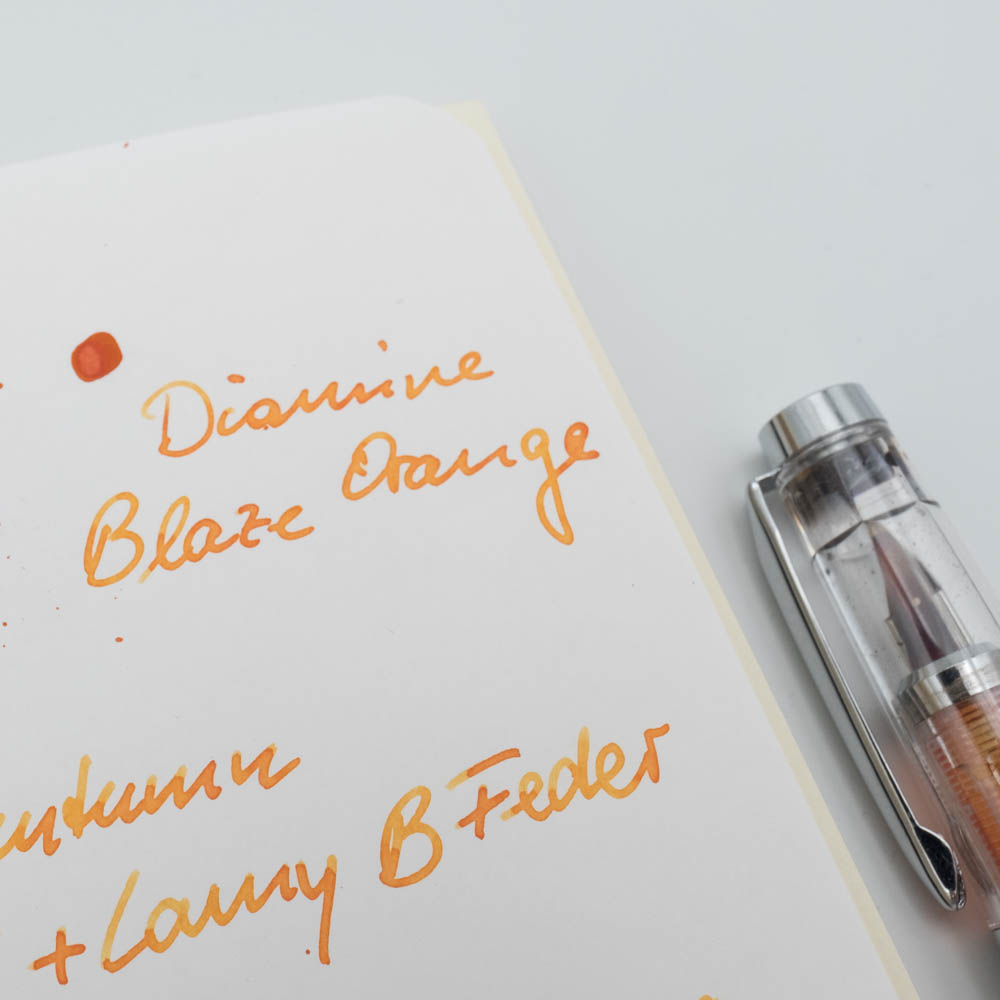 Diamine
Blaze Orange
autumn
+ Lamy B Feder